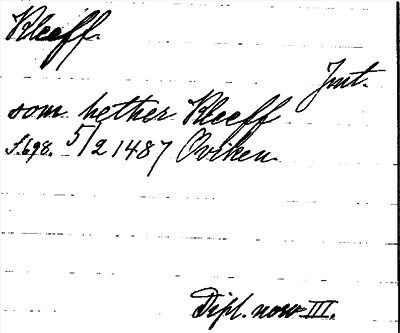 Kleeff.
Jmt.
som hether Kleeff
s.698. 5/2 1487 Oviken.
Dipl. norv III.